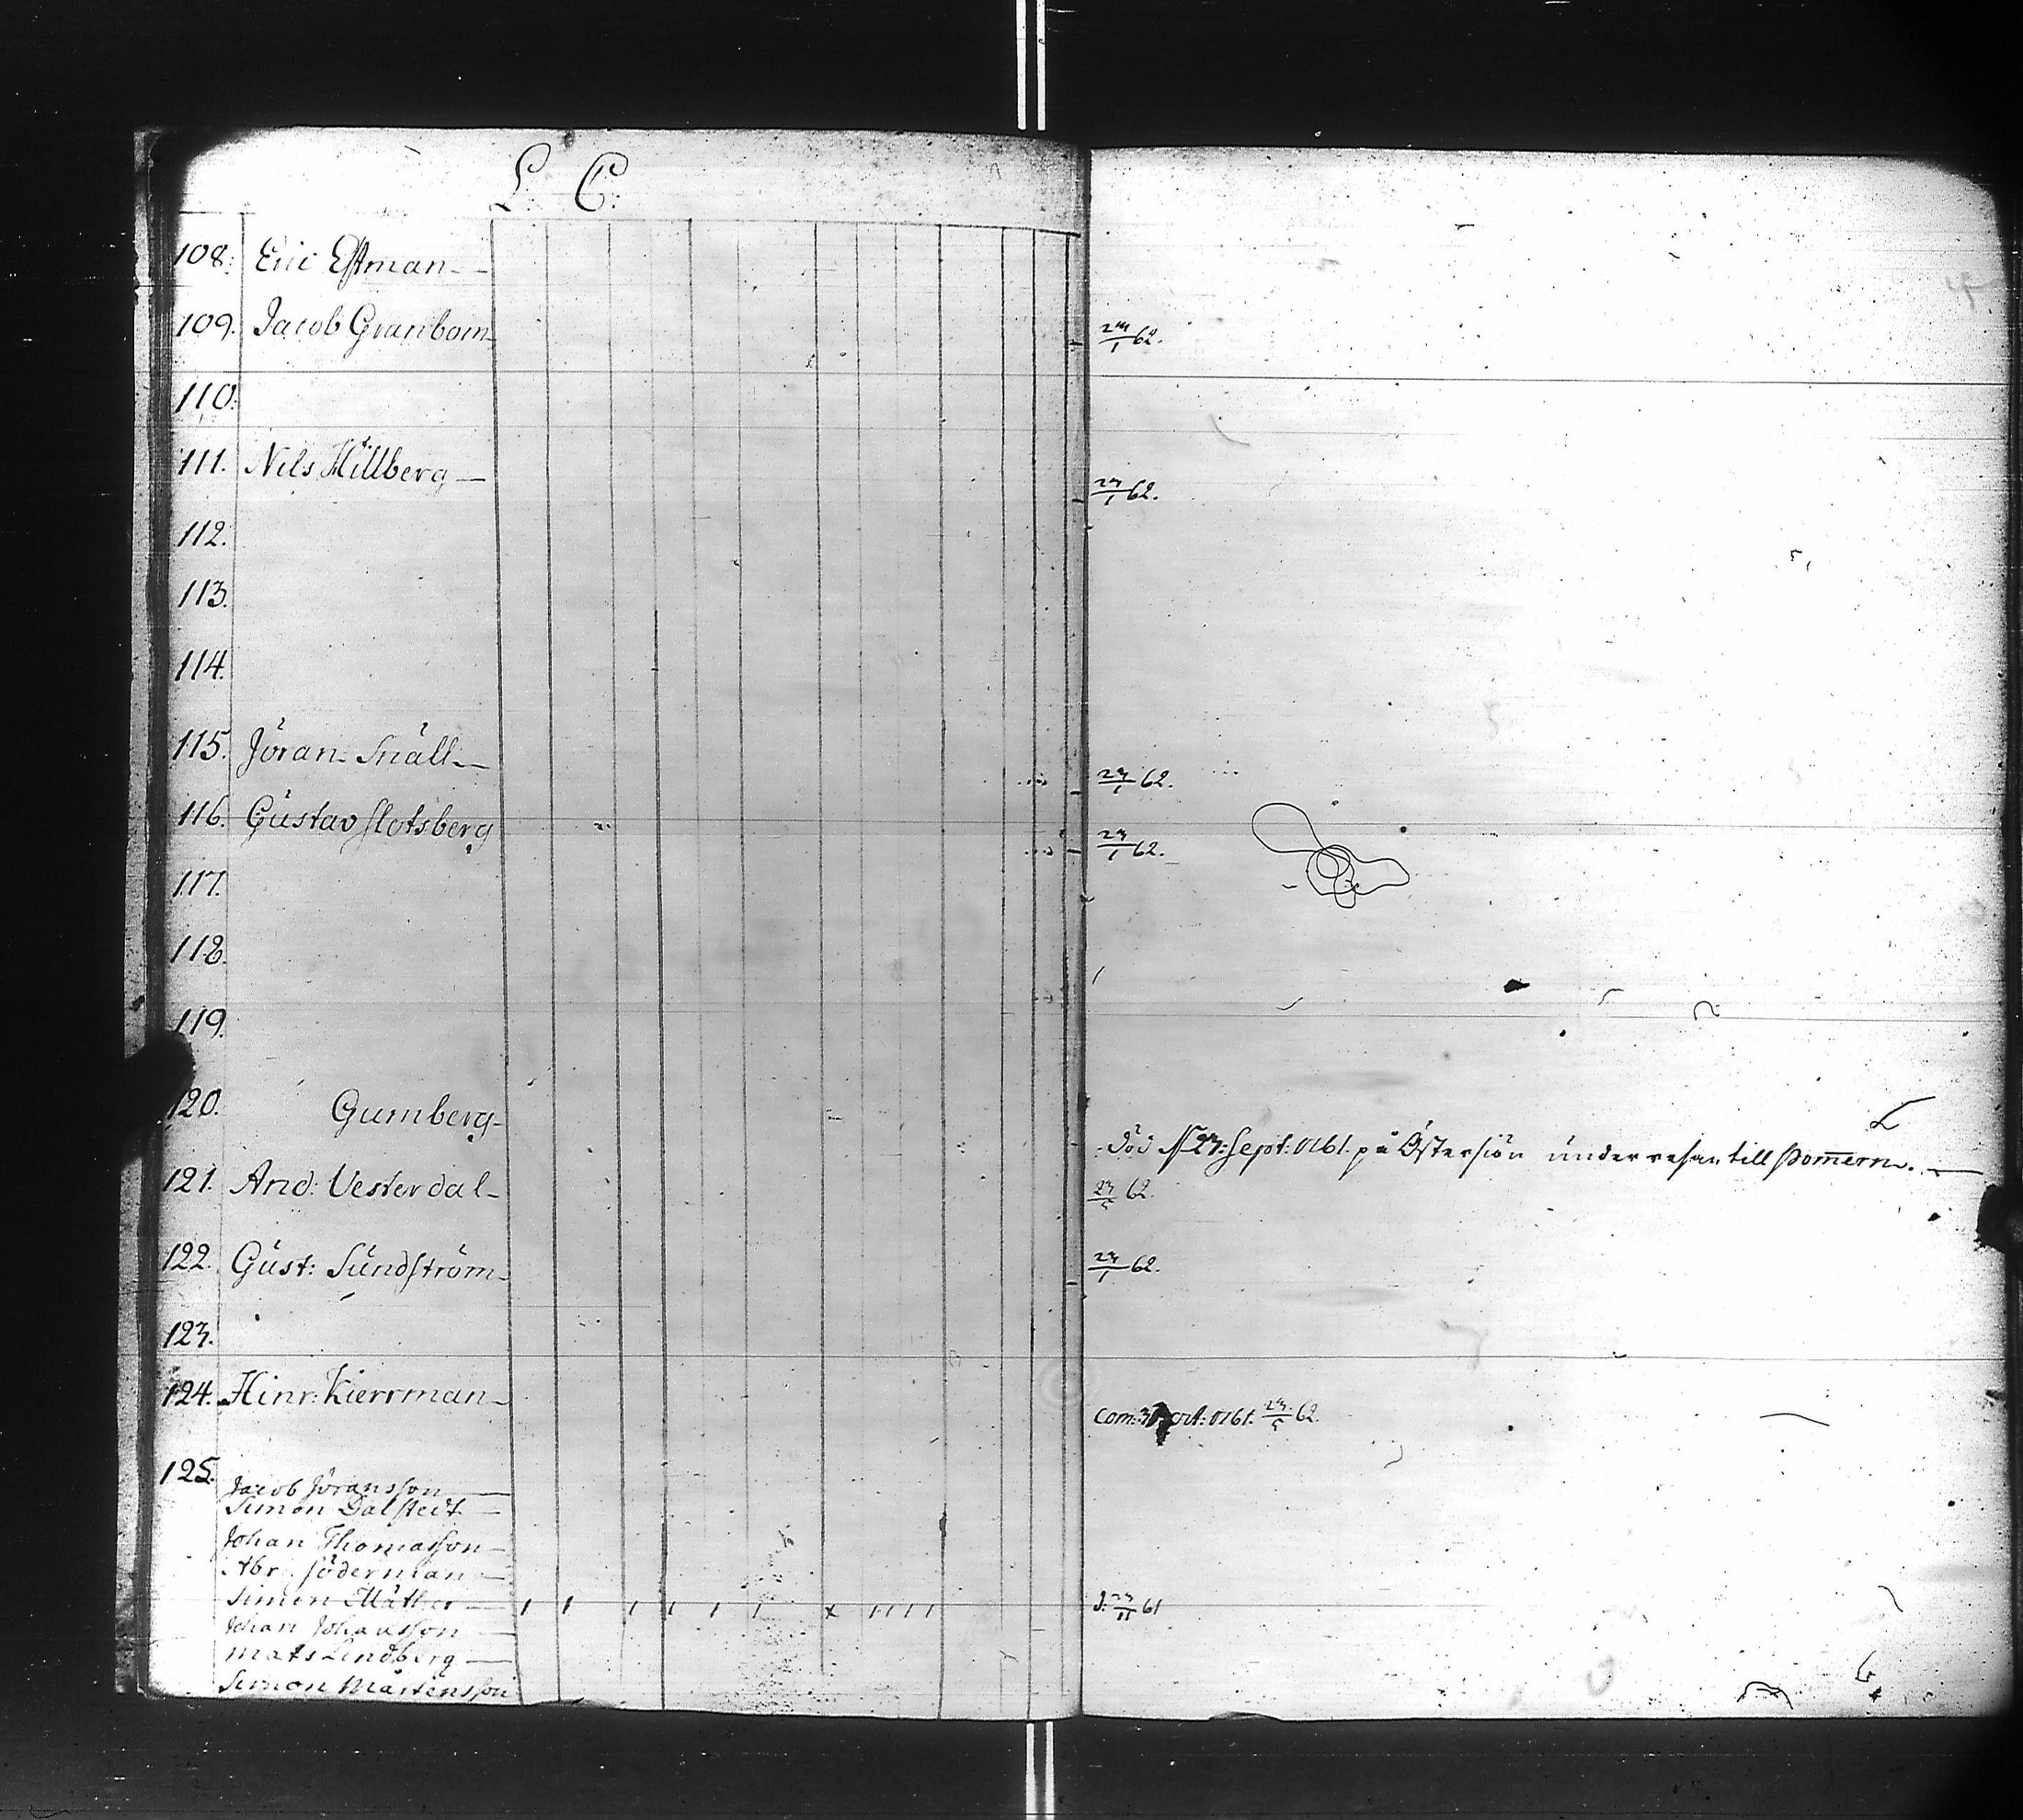 L. C.
108. Eric Estman
109. Jacob Granbom 23/1 62.
110.
111. Nils Hillberg 23/1 62.
112.
113.
114.
115. Jöran Snäll 23/1 62.
116. Gustav Slotsberg 23/1 62.
117.
118.
119.
120. Gumberg död 23: Sept: 1761. på Östersiön under resan till Pom̅ern.
121. And: Vesterdal 23/5 62.
122. Gust: Sundström 23/1 62.
123.
124. Hinr: Kierrman Com: oct: 1761. 23/5 62.
125.
Jacob Jöransson
Simon Dalstedt
Johan Thomasson
Abr. Söderman
Simon d. 23/11 61
Johan Johansson
Mats Lindberg
Simon Mårtensson